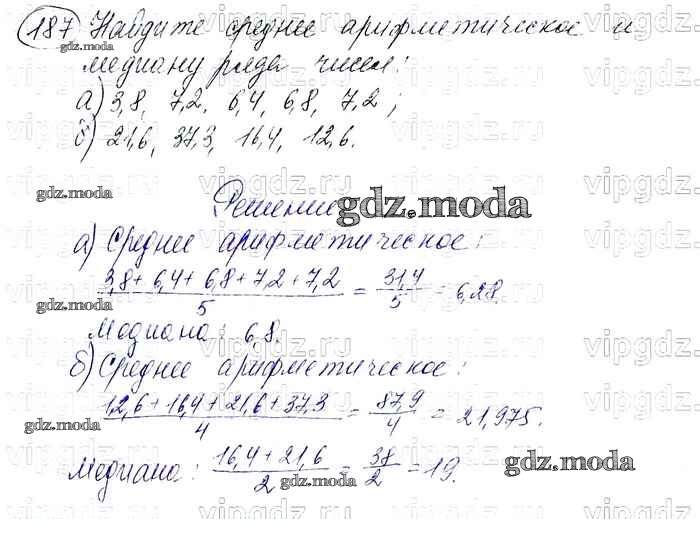 187 Найдите среднее арифметическое и
медиану ряда чисел:
а) 3,8, 7,2, 6,4, 6,8, 7,2;
б) 21,6, 37,3, 16,4, 12,6.
Решение
а) Среднее арифметическое:
3,8+6,4+6,8+7,2+7,2 / 5 = 31,4 / 5 = 6,28.
Медиана: 6,8.
б) Среднее арифметическое:
12,6+16,4+21,6+37,3 / 4 = 87,9 / 4 = 21,975.
Медиана: 16,4+21,6 / 2 = 38 / 2 = 19.
gdz.moda
gdz.moda
gdz.moda
gdz.moda
gdz.moda
gdz.moda
gdz.moda
vipgdz.ru